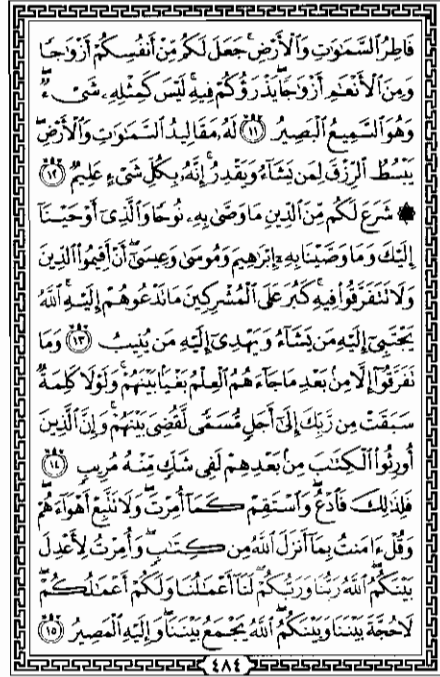 فَاطِرُ ٱلسَّمَٰوَٰتِ وَٱلْأَرْضِ ۚ جَعَلَ لَكُم مِّنْ أَنفُسِكُمْ أَزْوَٰجًا
وَمِنَ ٱلْأَنْعَٰمِ أَزْوَٰجًا ۖ يَذْرَؤُكُمْ فِيهِ ۚ لَيْسَ كَمِثْلِهِۦ شَىْءٌ ۖ
وَهُوَ ٱلسَّمِيعُ ٱلْبَصِيرُ ﴿١١﴾ لَهُۥ مَقَالِيدُ ٱلسَّمَٰوَٰتِ وَٱلْأَرْضِ ۖ
يَبْسُطُ ٱلرِّزْقَ لِمَن يَشَآءُ وَيَقْدِرُ ۚ إِنَّهُۥ بِكُلِّ شَىْءٍ عَلِيمٌ ﴿١٢﴾
۞ شَرَعَ لَكُم مِّنَ ٱلدِّينِ مَا وَصَّىٰ بِهِۦ نُوحًا وَٱلَّذِىٓ أَوْحَيْنَآ
إِلَيْكَ وَمَا وَصَّيْنَا بِهِۦٓ إِبْرَٰهِيمَ وَمُوسَىٰ وَعِيسَىٰٓ ۖ أَنْ أَقِيمُوا۟ ٱلدِّينَ
وَلَا تَتَفَرَّقُوا۟ فِيهِ ۚ كَبُرَ عَلَى ٱلْمُشْرِكِينَ مَا تَدْعُوهُمْ إِلَيْهِ ۚ ٱللَّهُ
يَجْتَبِىٓ إِلَيْهِ مَن يَشَآءُ وَيَهْدِىٓ إِلَيْهِ مَن يُنِيبُ ﴿١٣﴾ وَمَا
تَفَرَّقُوٓا۟ إِلَّا مِنۢ بَعْدِ مَا جَآءَهُمُ ٱلْعِلْمُ بَغْيًۢا بَيْنَهُمْ ۚ وَلَوْلَا كَلِمَةٌ
سَبَقَتْ مِن رَّبِّكَ إِلَىٰٓ أَجَلٍ مُّسَمًّى لَّقُضِىَ بَيْنَهُمْ ۚ وَإِنَّ ٱلَّذِينَ
أُورِثُوا۟ ٱلْكِتَٰبَ مِنۢ بَعْدِهِمْ لَفِى شَكٍّ مِّنْهُ مُرِيبٍ ﴿١٤﴾
فَلِذَٰلِكَ فَٱدْعُ ۖ وَٱسْتَقِمْ كَمَآ أُمِرْتَ ۖ وَلَا تَتَّبِعْ أَهْوَآءَهُمْ ۖ
وَقُلْ ءَامَنتُ بِمَآ أَنزَلَ ٱللَّهُ مِن كِتَٰبٍ ۖ وَأُمِرْتُ لِأَعْدِلَ
بَيْنَكُمُ ۖ ٱللَّهُ رَبُّنَا وَرَبُّكُمْ ۖ لَنَآ أَعْمَٰلُنَا وَلَكُمْ أَعْمَٰلُكُمْ ۖ
لَا حُجَّةَ بَيْنَنَا وَبَيْنَكُمُ ۖ ٱللَّهُ يَجْمَعُ بَيْنَنَا ۖ وَإِلَيْهِ ٱلْمَصِيرُ ﴿١٥﴾
٤٨٤